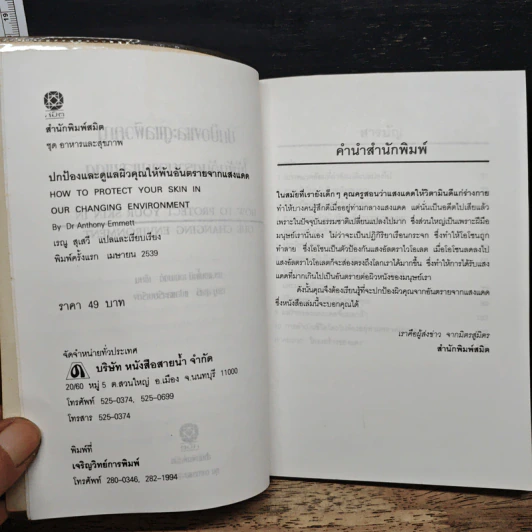 สำนักพิมพ์สมิต
ชุด อาหารและสุขภาพ
ปกป้องและดูแลผิวคุณให้พ้นอันตรายจากแสงแดด
HOW TO PROTECT YOUR SKIN IN
OUR CHANGING ENVIRONMENT
By Dr Anthony Emmett
เรณู สุเสวี แปลและเรียบเรียง
พิมพ์ครั้งแรก เมษายน 2539
ราคา 49 บาท
จัดจำหน่ายทั่วประเทศ
บริษัท หนังสือสายน้ำ จำกัด
20/60 หมู่ 5 ต.สวนใหญ่ อ.เมือง จ.นนทบุรี 11000
โทรศัพท์ 525-0374, 525-0699
โทรสาร 525-0374
พิมพ์ที่
เจริญวิทย์การพิมพ์
โทรศัพท์ 280-0346, 282-1994
คำนำสำนักพิมพ์
ในสมัยที่เรายังเด็กๆ คุณครูสอนว่าแสงแดดให้วิตามินดีแก่ร่างกาย
ทำให้บางคนรู้สึกดีเมื่ออยู่ท่ามกลางแสงแดด แต่นั่นเป็นอดีตไปเสียแล้ว
เพราะในปัจจุบันธรรมชาติเปลี่ยนแปลงไปมาก ซึ่งส่วนใหญ่เป็นเพราะฝีมือ
มนุษย์เรานั่นเอง ไม่ว่าจะเป็นปฏิกิริยาเรือนกระจก ซึ่งทำให้โอโซนถูก
ทำลาย ซึ่งโอโซนเป็นตัวป้องกันแสงอัลตราไวโอเลต เมื่อโอโซนลดลงไป
แสงอัลตราไวโอเลตก็จะส่องตรงถึงโลกเราได้มากขึ้น ซึ่งทำให้การได้รับแสง
แดดที่มากเกินไปเป็นอันตรายต่อผิวหนังของมนุษย์เรา
ดังนั้นคุณจึงต้องเรียนรู้ที่จะปกป้องผิวคุณจากอันตรายจากแสงแดด
ซึ่งหนังสือเล่มนี้จะบอกคุณได้
เราคือผู้ส่งข่าว จากมิตรสู่มิตร
สำนักพิมพ์สมิต